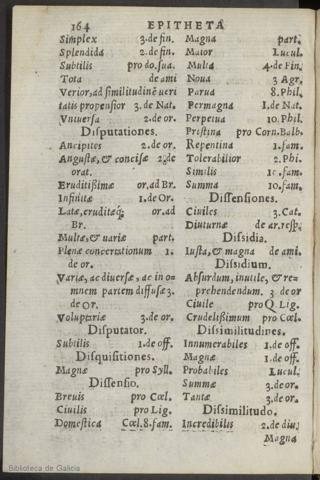 164 EPITHETA
Simplex 3.de fin.
Splendida 2.de fin.
Subtilis pro do.sua.
Tota de ami
Verior,ad similitudinē ueri
tatis propensior 3. de Nat.
Vniuersa 2.de or.
Disputationes.
Ancipites 2.de or.
Angustæ,& concisæ 2.de
orat.
Eruditißimæ or.ad Br.
Infinitæ 1.de Or.
Latæ,eruditæq́; or.ad
Br.
Multæ,& uariæ part.
Plenæ concertationum 1.
de or.
Variæ,ac diuersæ, ac in o=
mnem partem diffusæ 3.
de Or.
Voluptariæ 3.de or.
Disputator.
Subtilis 1.de off.
Disquisitiones.
Magnæ pro Syll.
Dissensio.
Breuis pro Cœl.
Ciuilis pro Lig.
Domestica Cœl.8.fam.
Magna part.
Maior Lucul.
Multa 4.de Fin.
Noua 3 Agr.
Parua 8.Phil.
Permagna 1.de Nat.
Perpetua 10.Phil.
Pristina pro Corn.Balb.
Repentina 1.fam.
Tolerabilior 2.Phi.
Similis 10.fam.
Summa 10.fam.
Dissensiones.
Ciuiles 3.Cat.
Diuturnæ de ar.resp.
Dissidia.
Iusta,& magna de ami.
Dissidium.
Absurdum, inutile, & re=
prehendendum. 3 de or
Ciuile pro Q Lig.
Crudelißimum pro Cœl.
Dissimilitudines.
Innumerabiles 1.de off.
Magnæ 1.de off.
Probabiles Lucul.
Summæ 3.de or.
Tantæ 3.de or.
Dissimilitudo.
Incredibilis 2.de diu.
Magna
Biblioteca de Galicia